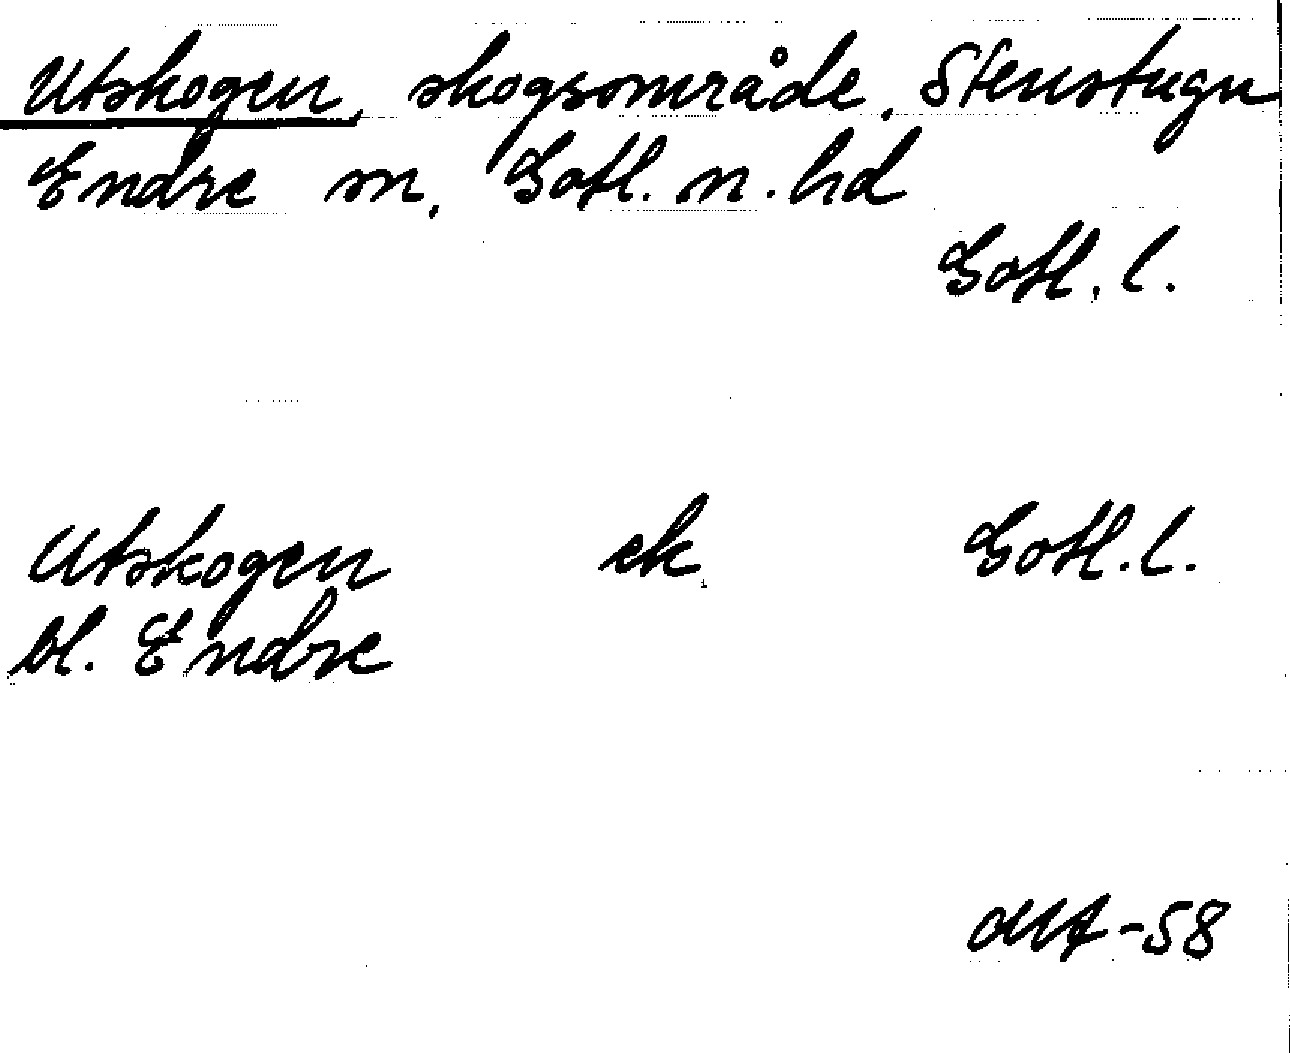 Utskogen, skogsområde, Stenstugu
Endre sn, Gotl. n. hd
Gotl. l.
Utskogen ek Gotl. l.
bl. Endre
-58